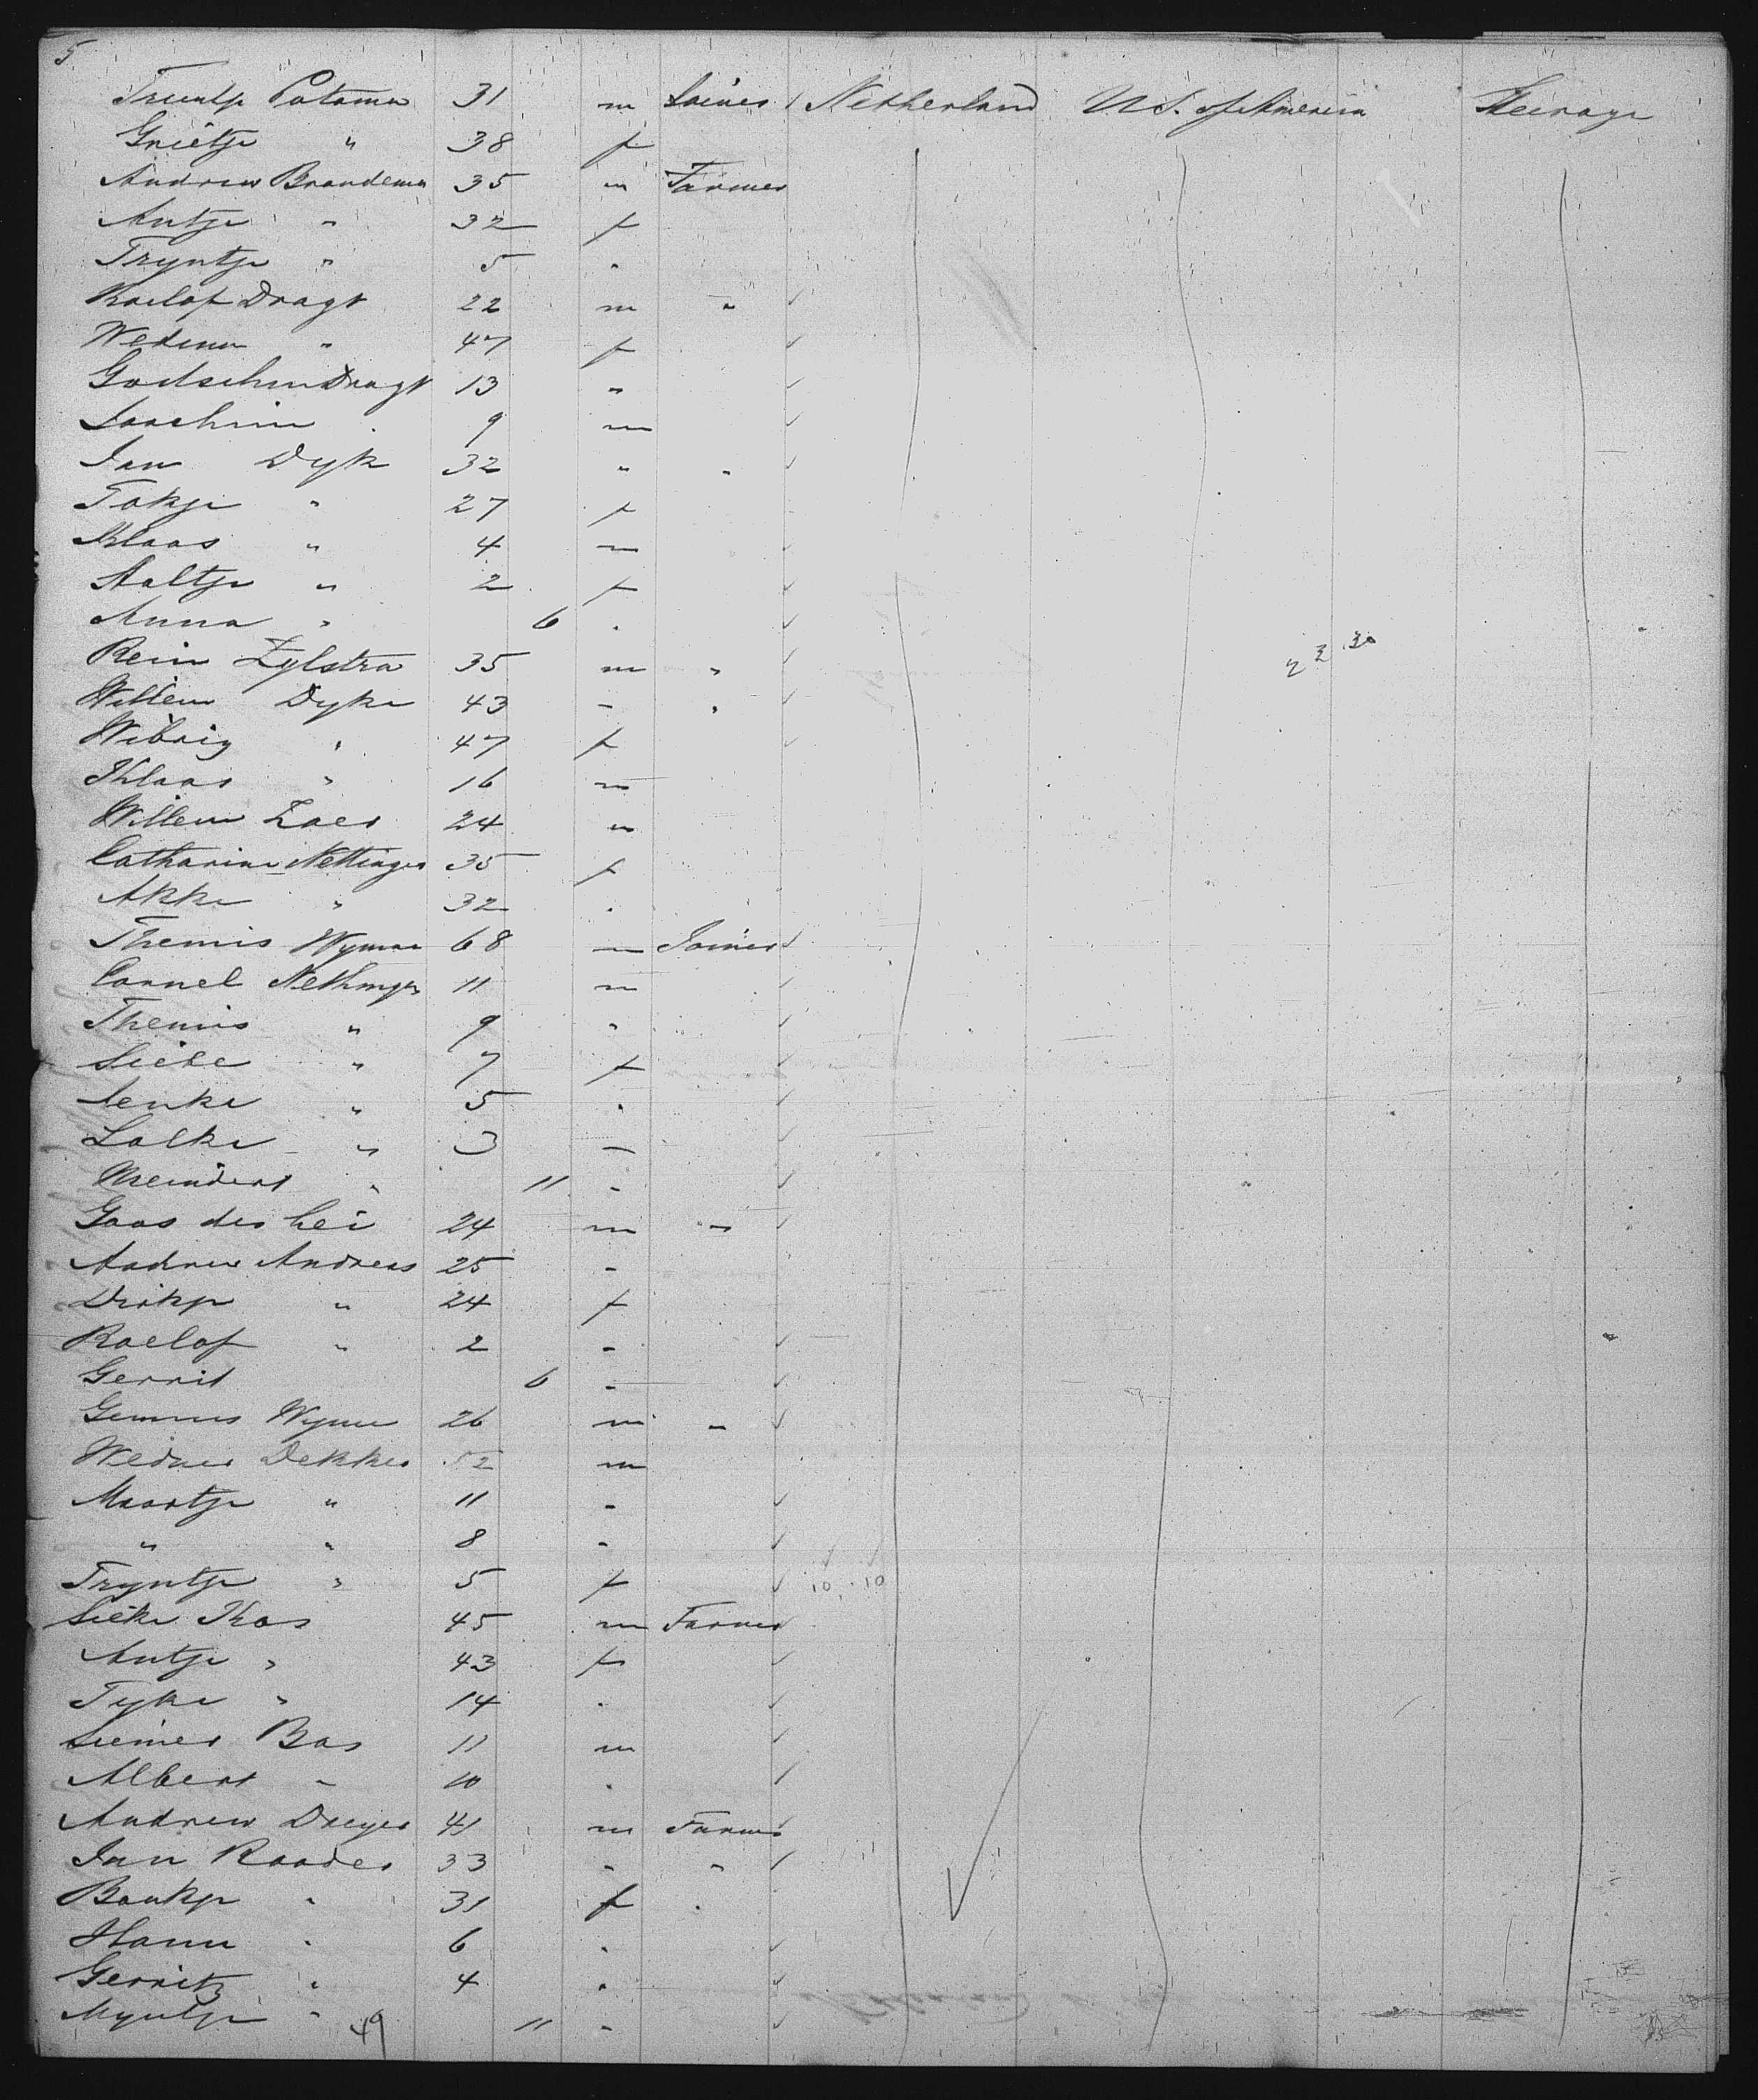 5
Trientje Potoma 31 m Joiner Netherland U.S. of America Steerage
Grietje " 38 f
Andrew Brandema 35 m Farmer
Antje " 32 f
Tryntje " 5 "
Roelof Dragt 22 m "
Wedena " 47 f
Godschen Dragt 13 "
Joachim 9 m
Jan Dyk 32 " "
Tokje " 27 f
Klaas " 4 m
Aaltje " 2 f
Anna " 6 "
Rein Zylstra 35 m "
Willem Dyke 43 - "
Wibrig " 47 f
Klaas " 16 m
Willem Zaer 24 m
Catharina Nettinger 35 f
Akke " 32 "
Themis Wyma 68 m Joiner
Cornel Nethinger 11 m
Themis " 9 "
Siebe " 7 f
Senke " 5 "
Lolke " 3 m
Meindert " 11 "
Goos der hei 24 m "
Andrew Andreas 25 -
Dirkje " 24 f
Roelof " 2 -
Gerrit 6 -
Gemmus Wyma 26 m "
Wedner Dekker 52 m
Maartje " 11 -
" " 8 -
Tryntje " 5 f 10 10
Sieke Kos 45 m Farmer
Antje " 43 f
Tyke " 14 "
Siemer Bos 11 m
Albert " 10 "
Andrew Dreyer 41 m Farmer
Jan Raader 33 " "
Baukje " 31 f "
Hann " 6 "
Gerritz " 4 "
Myntje " 11 -
49